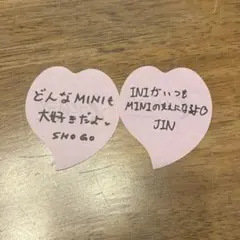 どんなMINIも
大好きだよ
SHOGO
INIがいつも
MINIの支えになるよ♡
JIN